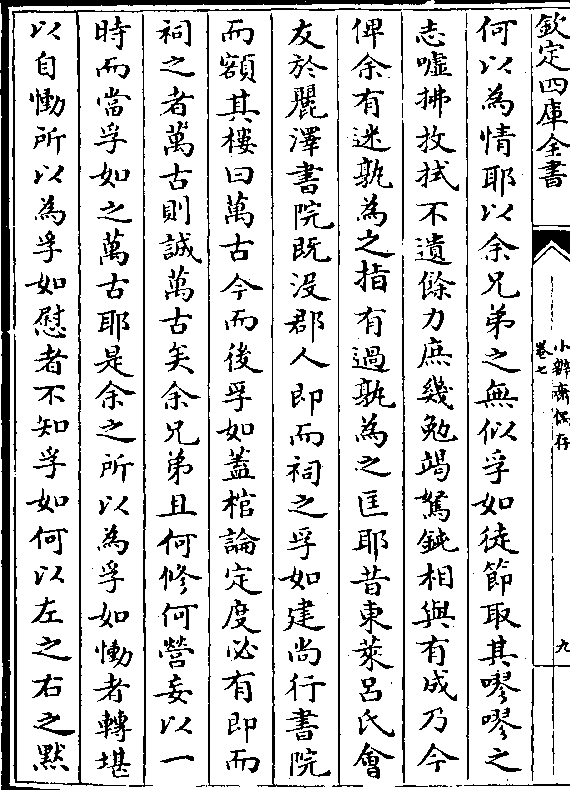 欽定四庫全書
小辨齋偶存
卷七
九
何以為情耶以余兄弟之無似孚如徒節取其嘐嘐之
志噓拂拔拭不遺餘力庶幾勉竭駑鈍相與有成乃今
俾余有迷孰為之指有過孰為之匡耶昔東萊呂氏會
友於麗澤書院既沒郡人即而祠之孚如建尚行書院
而額其樓曰萬古今而後孚如蓋棺論定度必有即而
祠之者萬古則誠萬古矣余兄弟且何修何營妄以一
時而當孚如之萬古耶是余之所以為孚如慟者轉堪
以自慟所以為孚如慰者不知孚如何以左之右之黙